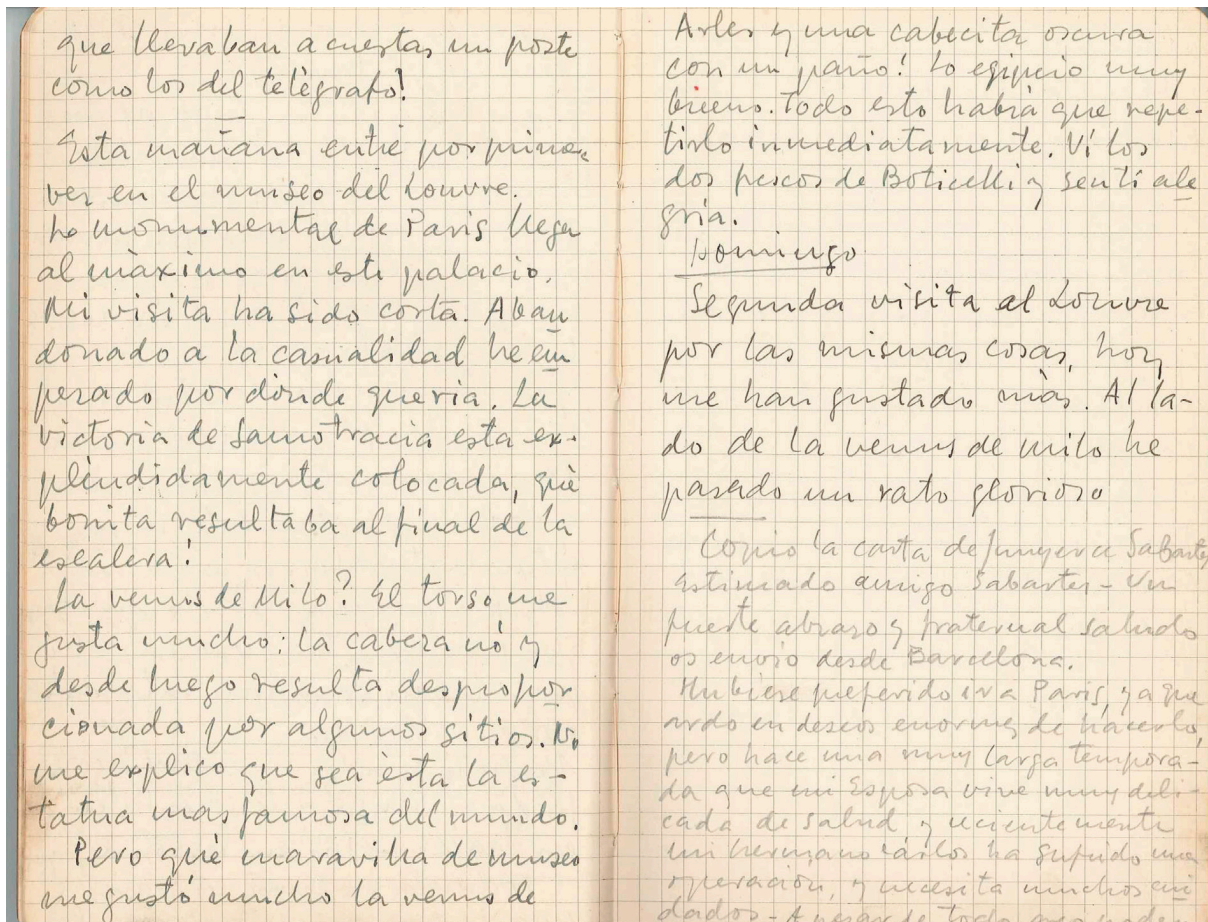 que llevaban a cuestas un poste
como los del telègrafo!
Esta mañana entré por primera
vez en el museo del Louvre.
Lo monumental de Paris llega
al màximo en este palacio.
Mi visita ha sido corta. Aban
donado a la casualidad he em
pezado por donde queria. La
victoria de Samotracia esta ex-
plèndidamente colocada, què
bonita resultaba al final de la
escalera!
La venus de Milo? El torso me
gusta mucho; la cabeza nó y
desde luego resulta despropor
cionada por algunos sitios. No
me explico que sea èsta la es-
tatua mas famosa del mundo.
Pero què maravilla de museo
me gustó mucho la venus de
Arles y una cabecita oscura
con un paño! Lo egipcio muy
bueno. Todo esto habrà que repe-
tirlo inmediatamente. Ví los
dos frescos de Boticelli y sentí ale
gría.
Domingo
Segunda visita al Louvre
por las mismas cosas, hoy
me han gustado màs. Al la-
do de la venus de milo he
pasado un rato glorioso
Copio la carta de Junyer a Sabartes
Estimado amigo Sabartes - Un
fuerte abrazo y fraternal saludo
os envio desde Barcelona.
Hubiese preferido ir a Paris, ya que
ardo en deseos enormes de hacerlo,
pero hace una muy larga tempora-
da que mi Esposa vive muy deli-
cada de salud, y recientemente
un hermano Carlos ha sufrido una
operación, y necesita muchos cui
dados - A pesar de todo